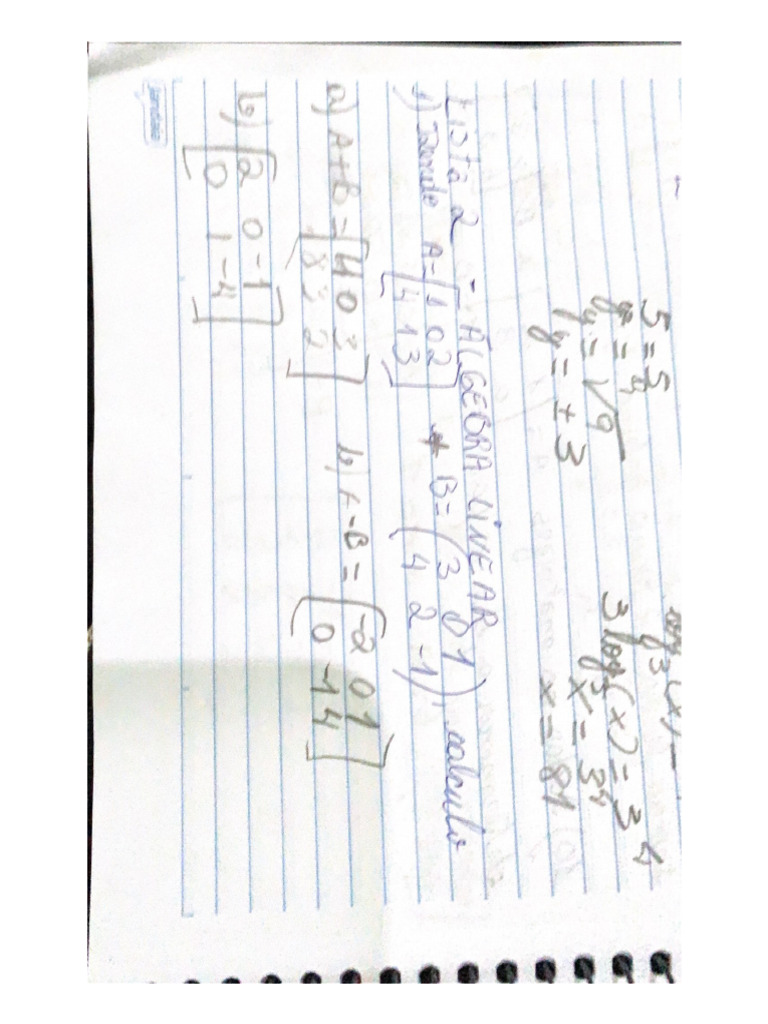 5 = 5
y² = 9
y = √9
y = ± 3
log₃(x) =
3 log₃(x) = 3 4
x = 3⁴
x = 81
Lista 2 - ÁLGEBRA LINEAR
1) A = [1 0 2
4 1 3] B = (3 0 1
4 2 -1), calcule
a) A+B = [4 0 3
8 3 2] b) A-B = [-2 0 1
0 -1 4]
b) [2 0 -1
0 1 -4]
jandaia